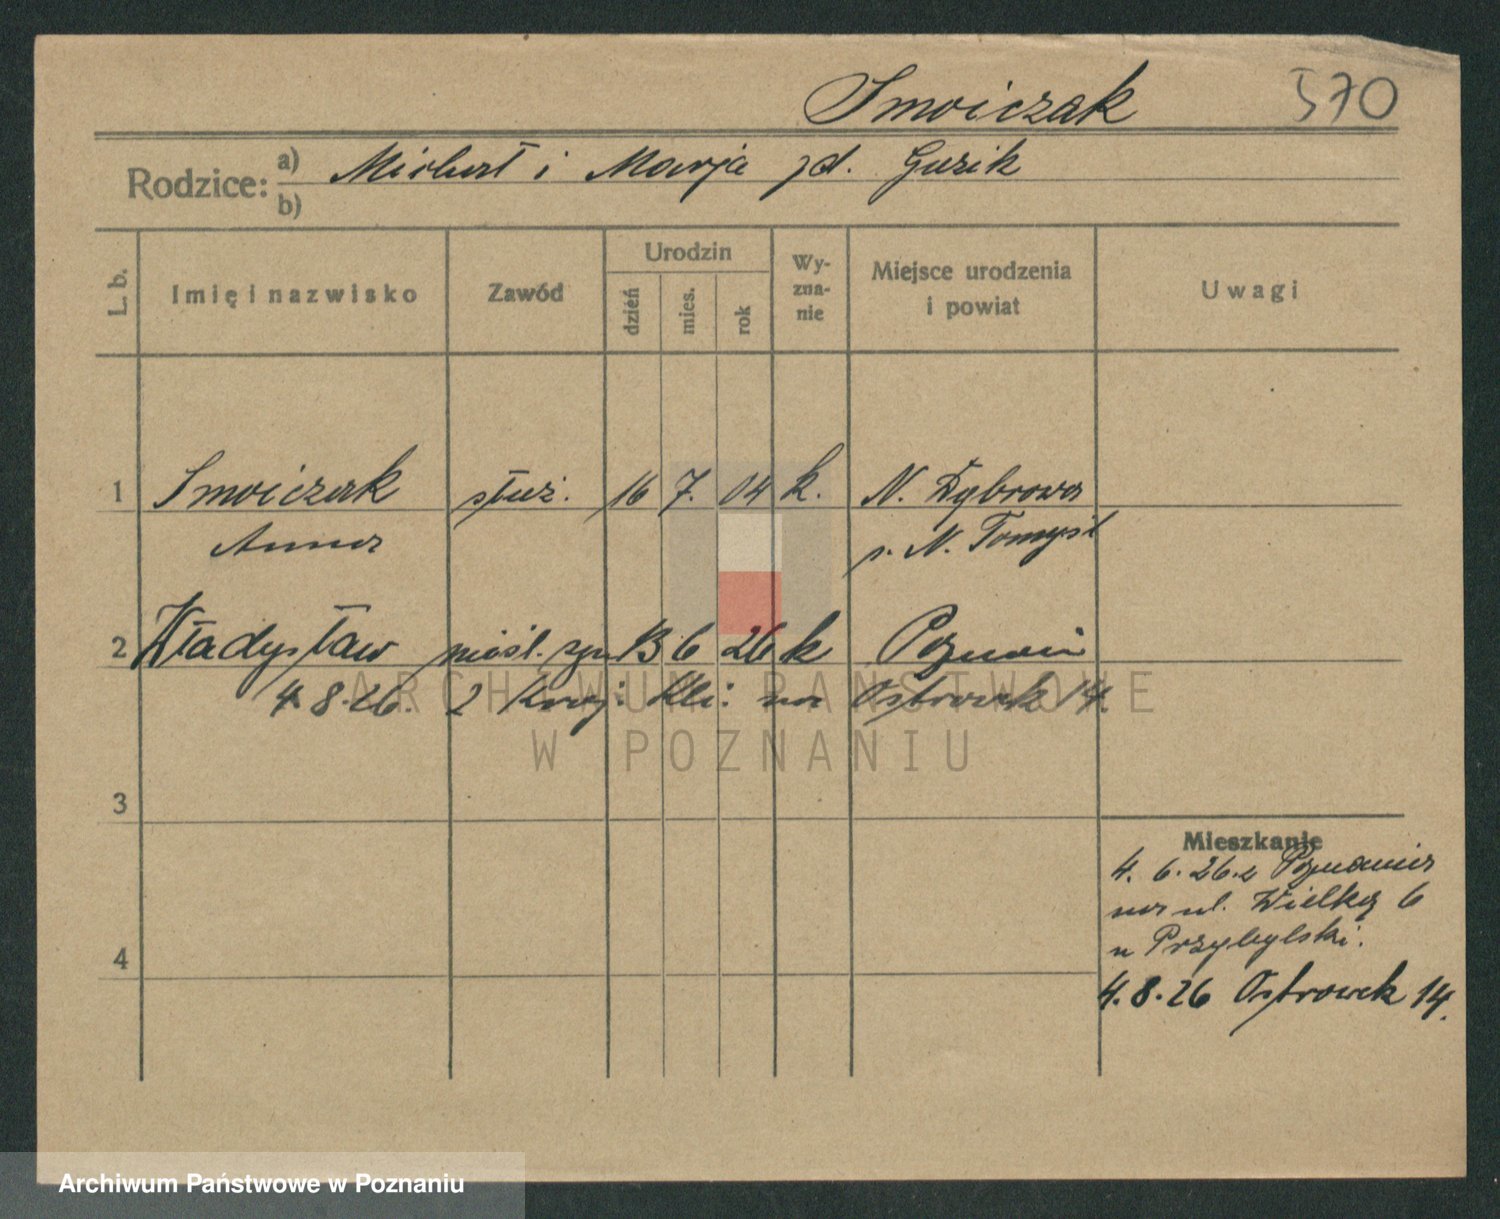 Smoiczak 570
Rodzice: a) Michał i Marja zd. Guzik
b)
L. b. Imię i nazwisko Zawód Urodzin dzień mies. rok Wyznanie Miejsce urodzenia i powiat Uwagi
1 Smoiczak służ. 16 7. 04 k. N. Dąbrowa
Anna p. N. Tomyśl
2 Władysław nieśl. syn 13 6 26 k Poznań
4.8.26. z Kraj. Kli. na Ostrowek 14.
ARCHIWUM PAŃSTWOWE
W POZNANIU
3
Mieszkanie
4. 6. 26. z Poznania
na ul. Wielką 6
u Przybylski.
4
4.8.26 Ostrowek 14.
Archiwum Państwowe w Poznaniu